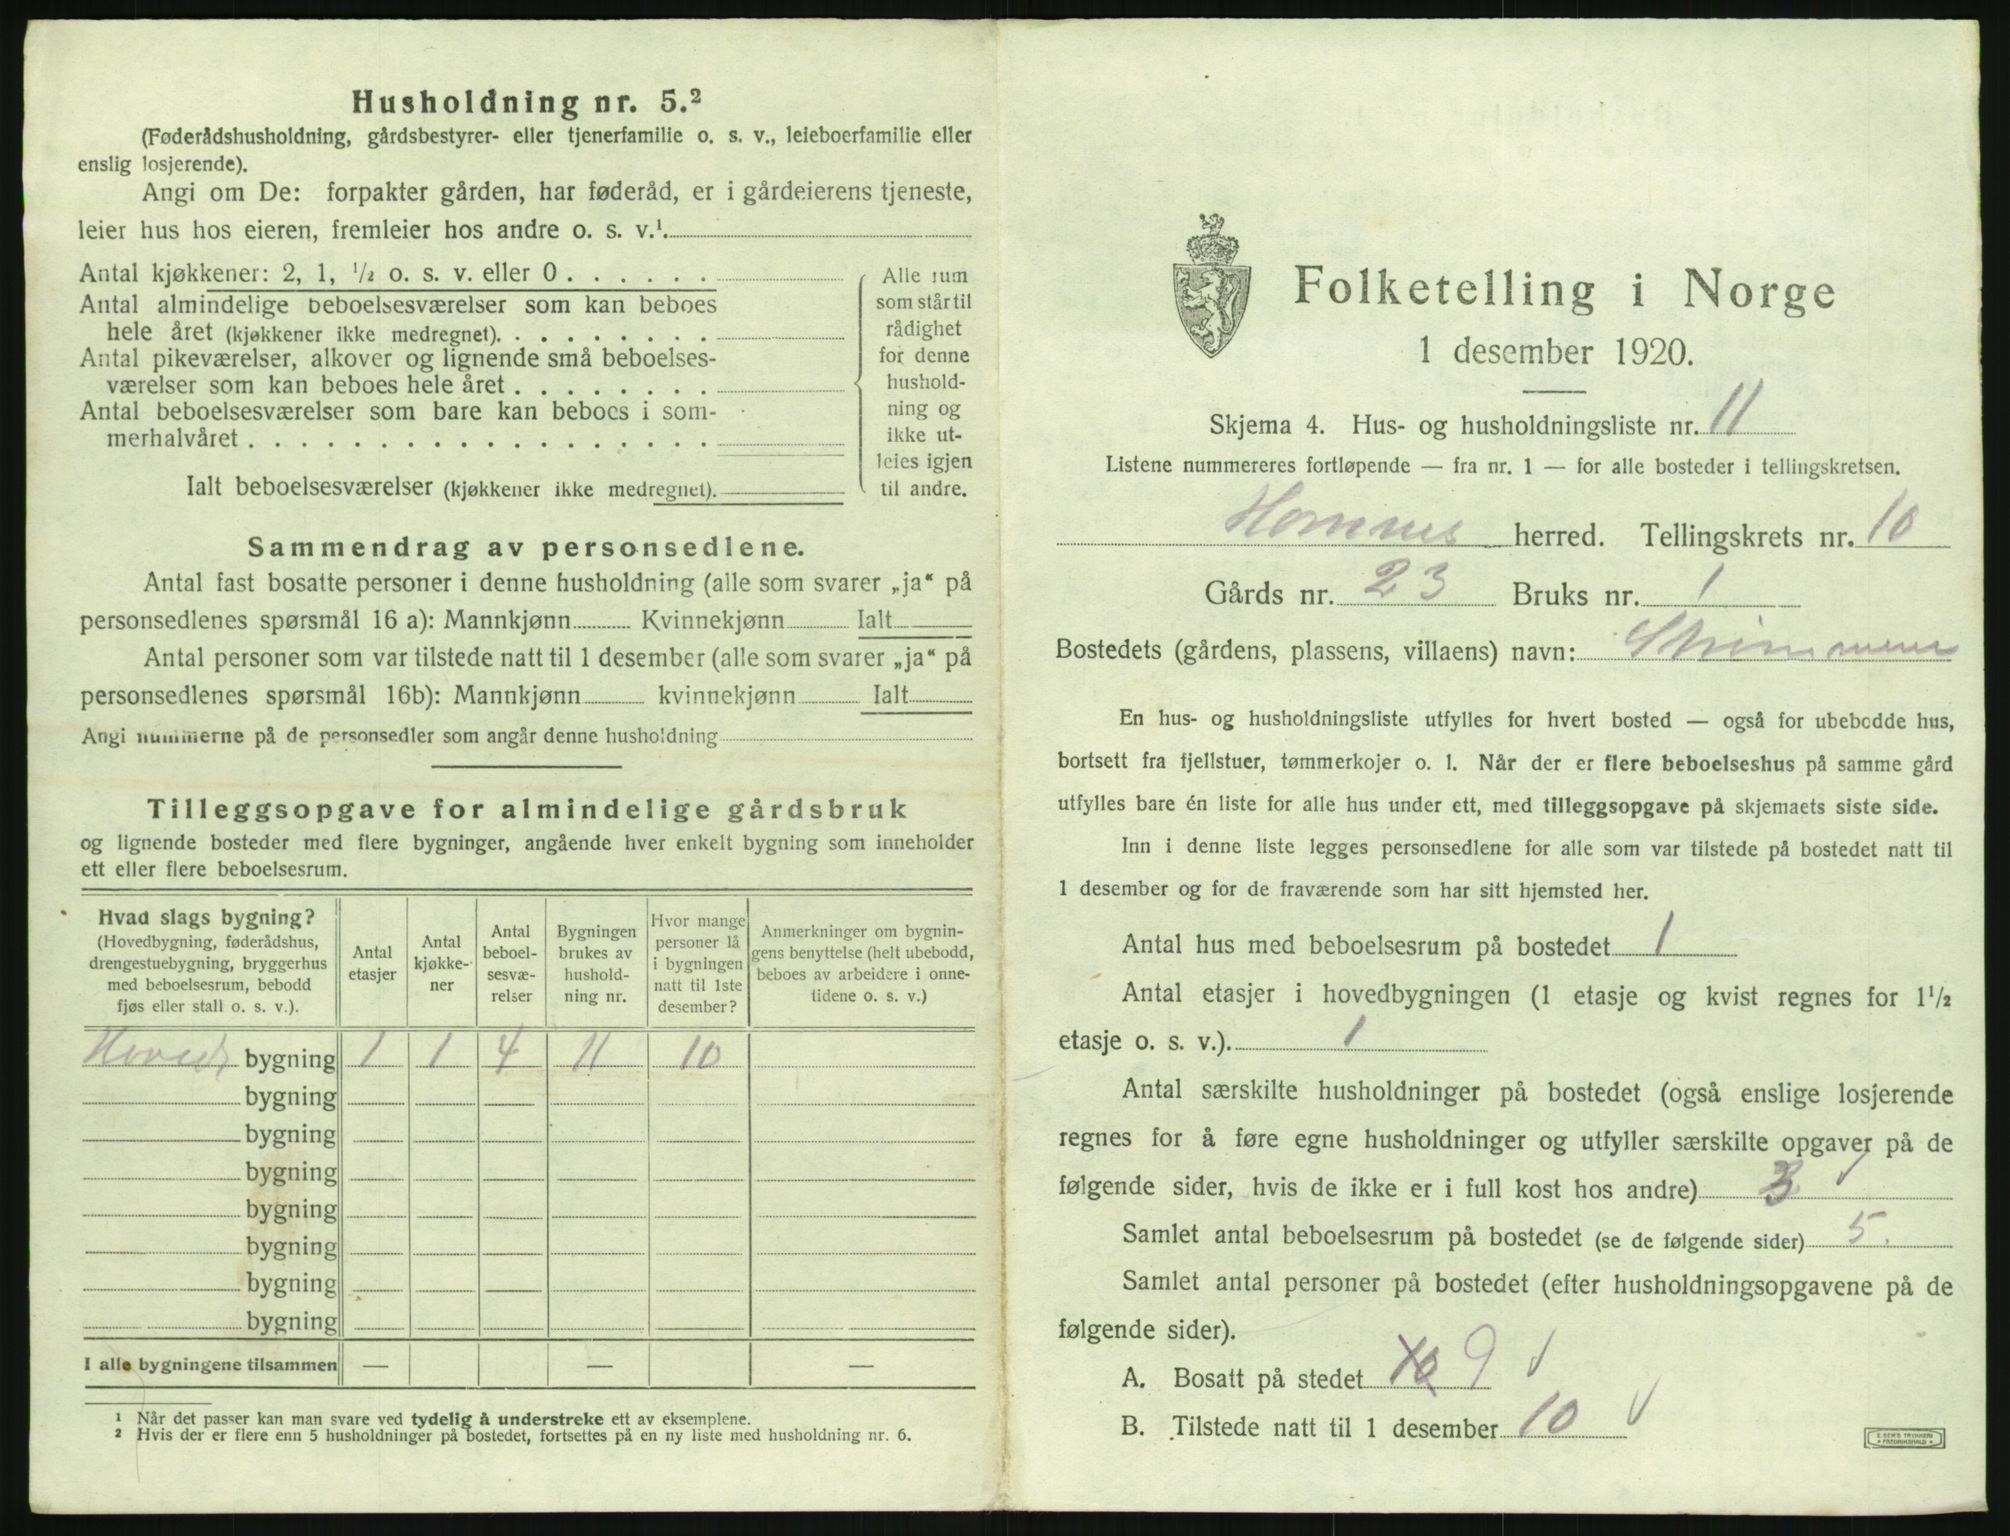 Husholdning nr. 5.²
(Føderådshusholdning, gårdsbestyrer- eller tjenerfamilie o. s. v., leieboerfamilie eller
enslig losjerende).
Angi om De: forpakter gården, har føderåd, er i gårdeierens tjeneste,
leier hus hos eieren, fremleier hos andre o. s. v.¹.
Antal kjøkkener: 2, 1, ½ o. s. v. eller 0 . . . . . .
Antal almindelige beboelsesværelser som kan beboes
hele året (kjøkkener ikke medregnet). . . . . . . . .
Antal pikeværelser, alkover og lignende små beboelses-
værelser som kan beboes hele året . . . . . . . .
Antal beboelsesværelser som bare kan beboes i som-
merhalvåret . . . . . . . . . . . . . . . . . .
Ialt beboelsesværelser (kjøkkener ikke medregnet).
Alle rum
som står til
rådighet
for denne
hushold-
ning og
ikke ut-
leies igjen
til andre.
Sammendrag av personsedlene.
Antal fast bosatte personer i denne husholdning (alle som svarer „ja“ på
personsedlenes spørsmål 16 a): Mannkjønn Kvinnekjønn Ialt
Antal personer som var tilstede natt til 1 desember (alle som svarer „ja“ på
personsedlenes spørsmål 16b): Mannkjønn kvinnekjønn Ialt
Angi nummerne på de personsedler som angår denne husholdning
Tilleggsopgave for almindelige gårdsbruk
og lignende bosteder med flere bygninger, angående hver enkelt bygning som inneholder
ett eller flere beboelsesrum.
Hvad slags bygning?
(Hovedbygning, føderådshus,
drengestuebygning, bryggerhus
med beboelsesrum, bebodd
fjøs eller stall o. s. v.).
Antal
etasjer
Antal
kjøkke-
ner
Antal
beboel-
sesvæ-
relser
Bygningen
brukes av
hushold-
ning nr.
Hvor mange
personer lå
i bygningen
natt til 1ste
desember?
Anmerkninger om bygnin-
gens benyttelse (helt ubebodd,
beboes av arbeidere i onne-
tidene o. s. v.)
Hoved bygning 1 1 4 11 10
bygning
bygning
bygning
bygning
bygning
bygning
bygning
I alle bygningene tilsammen — — —
¹ Når det passer kan man svare ved tydelig å understreke ett av eksemplene.
² Hvis der er flere enn 5 husholdninger på bostedet, fortsettes på en ny liste med husholdning nr. 6.
Folketelling i Norge
1 desember 1920.
Skjema 4. Hus- og husholdningsliste nr. 11
Listene nummereres fortløpende — fra nr. 1 — for alle bosteder i tellingskretsen.
Hornnes herred. Tellingskrets nr. 10
Gårds nr. 23 Bruks nr. 1
Bostedets (gårdens, plassens, villaens) navn:
En hus- og husholdningsliste utfylles for hvert bosted — også for ubebodde hus,
bortsett fra fjellstuer, tømmerkojer o. l. Når der er flere beboelseshus på samme gård
utfylles bare én liste for alle hus under ett, med tilleggsopgave på skjemaets siste side.
Inn i denne liste legges personsedlene for alle som var tilstede på bostedet natt til
1 desember og for de fraværende som har sitt hjemsted her.
Antal hus med beboelsesrum på bostedet 1
Antal etasjer i hovedbygningen (1 etasje og kvist regnes for 1½
etasje o. s. v.). 1
Antal særskilte husholdninger på bostedet (også enslige losjerende
regnes for å føre egne husholdninger og utfyller særskilte opgaver på de
følgende sider, hvis de ikke er i full kost hos andre) 3
Samlet antal beboelsesrum på bostedet (se de følgende sider) 5.
Samlet antal personer på bostedet (efter husholdningsopgavene på de
følgende sider).
A. Bosatt på stedet 10 9
B. Tilstede natt til 1 desember 10